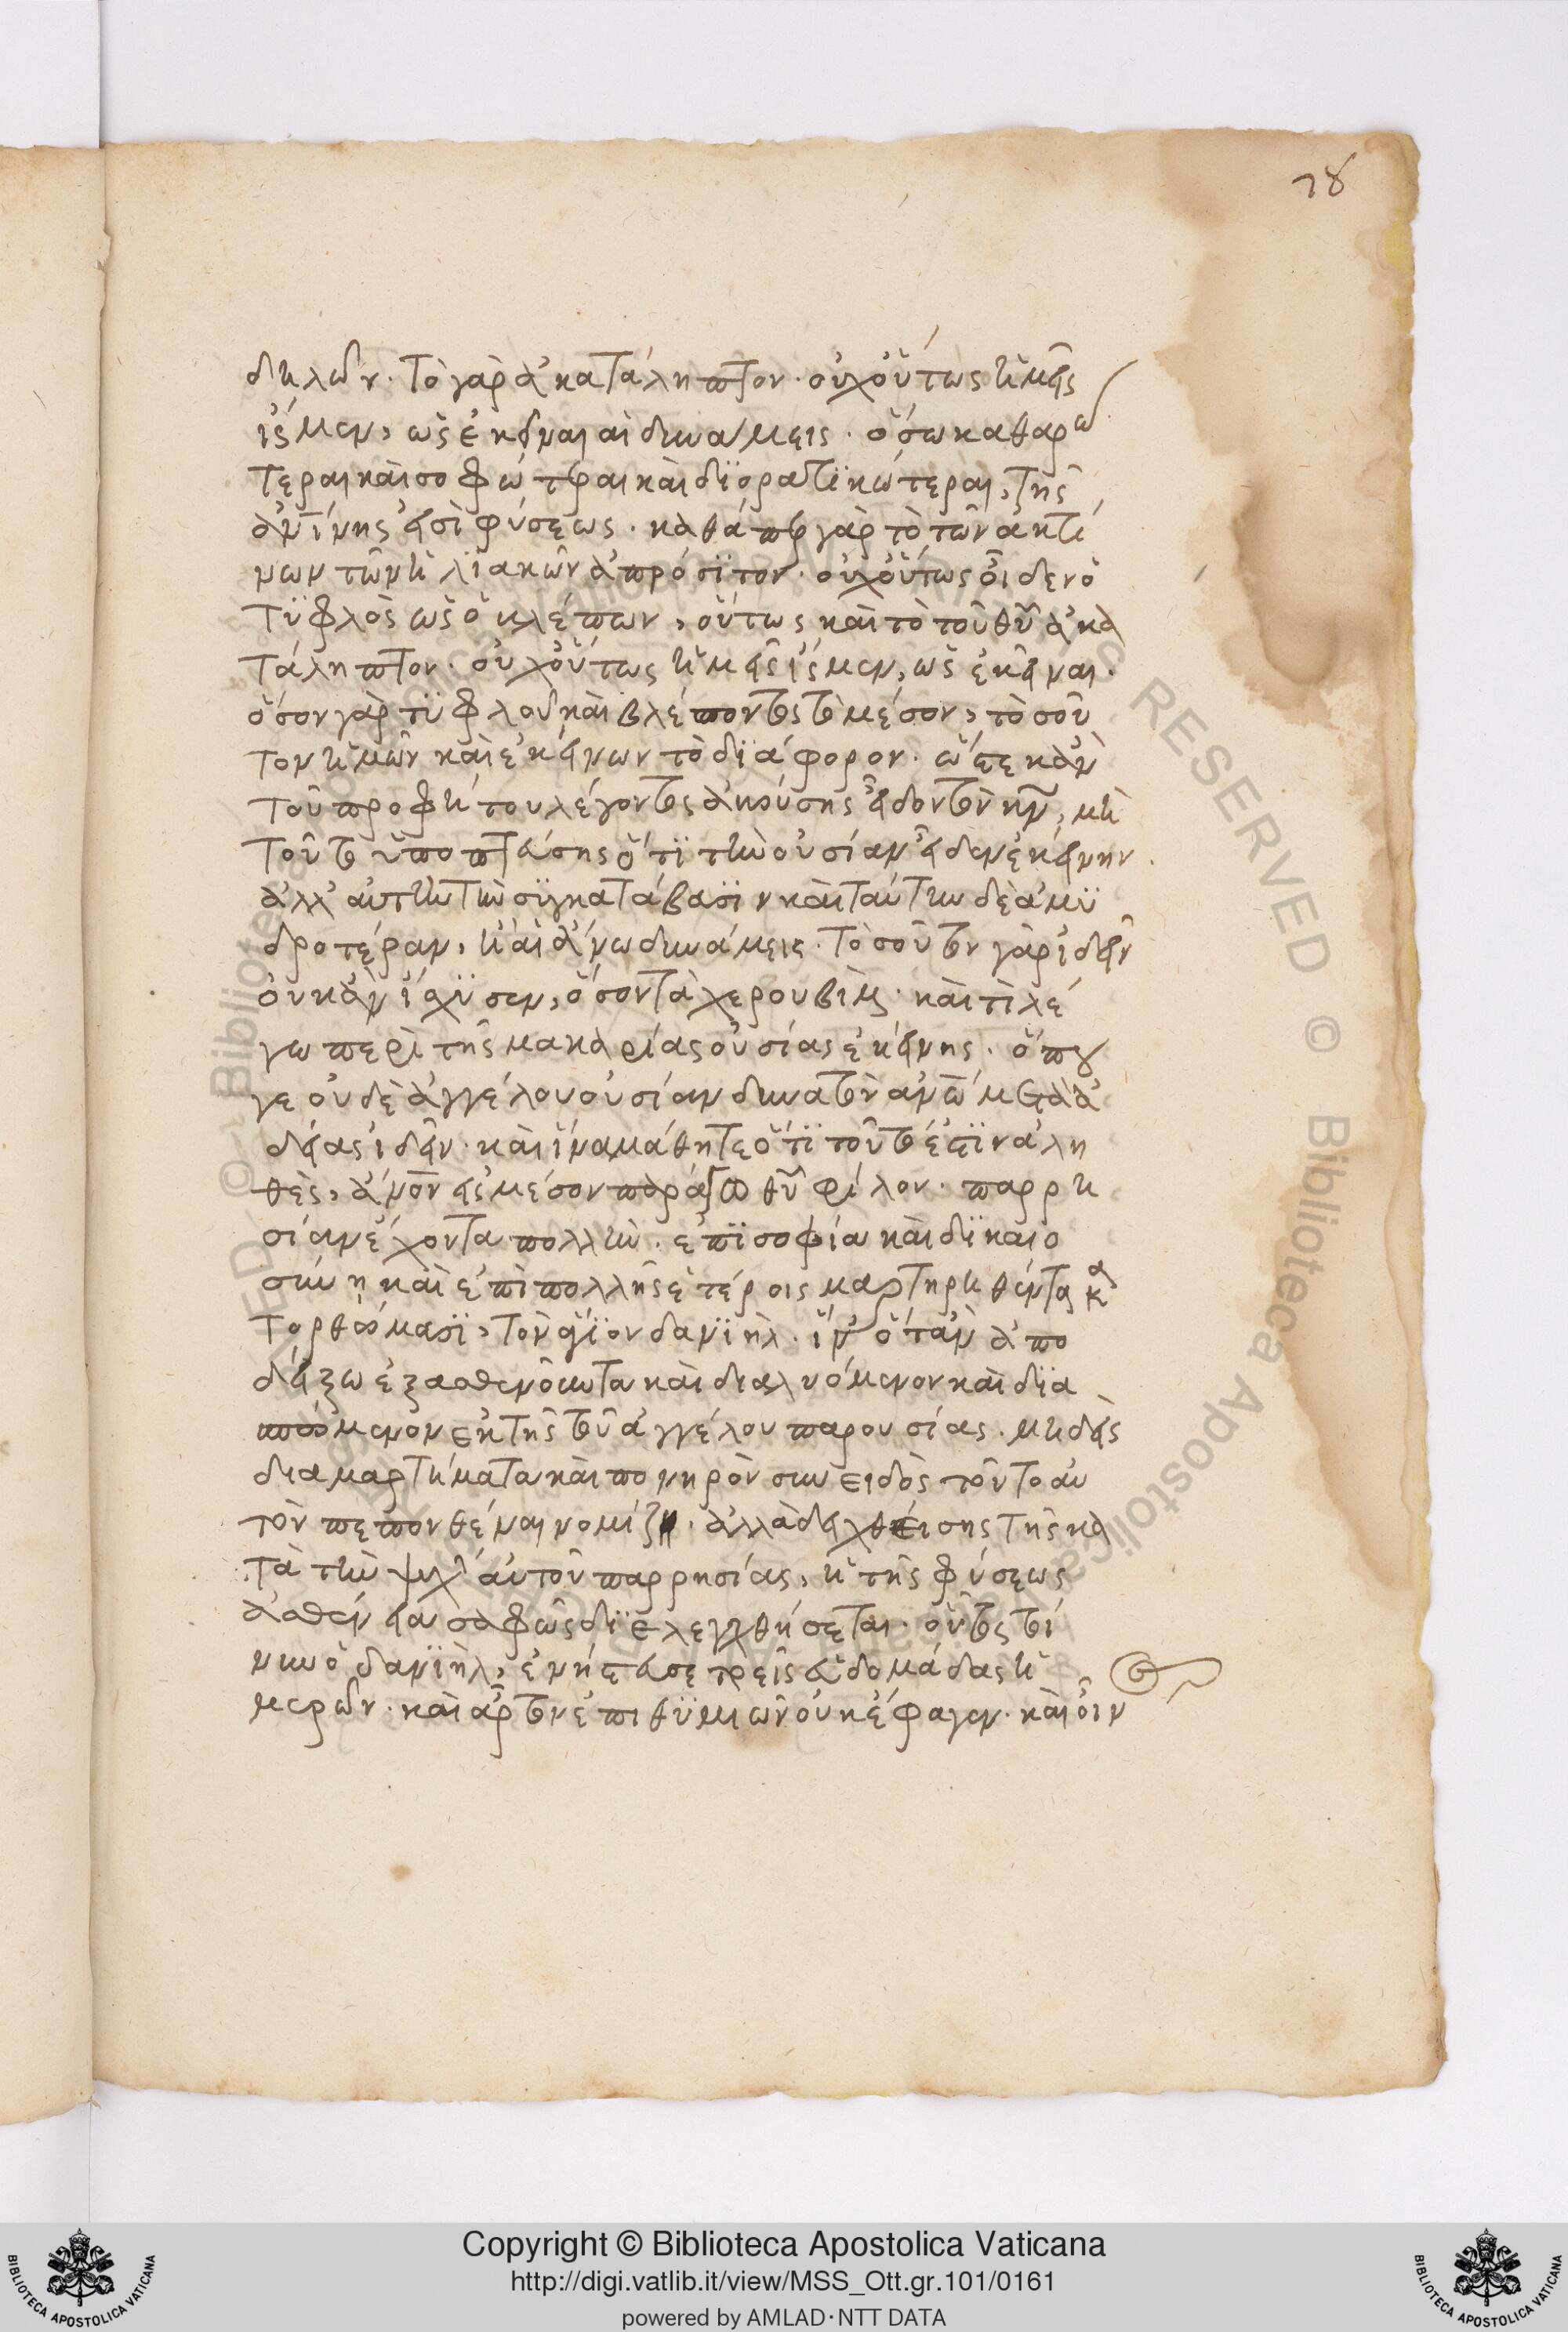 78
δηλῶν. τὸ γὰρ ἀκατάληπτον. οὐχ οὕτως ἡμεῖς
ἴσμεν, ὡς ἐκεῖναι αἱ δυνάμεις. ὅσω καθαρω
τεραι καὶ σοφώτεραι καὶ διορατικώτεραι, τῆς
ἀνίνης εἰσὶ φύσεως. καθάπερ γὰρ τὸ τῶν ἀκτί
νων τῶν ἡλιακῶν ἀπρόσϊτον. οὐχ οὕτως οἶδεν ὁ
τϋφλὸς ὡς ὁ κλέπων, οὕτως καὶ τὸ τοῦ θῦ ἀκα
τάληπτον. οὐχ οὕτως ἡμεῖς ἴσμεν, ὡς ἐκεῖναι.
ὅσον γὰρ τϋφλοῦ καὶ βλέποντος τὸ μέσον, τοσοῦ
τον ἡμῶν καὶ ἐκείνων τὸ διάφορον. ὥστε κἂν
τοῦ προφήτου λέγοντος ἀκούσης εἶδον τὸν κν, μὴ
τοῦτο ὑποπτεύσης ὅτι τὴν οὐσίαν εἶδεν ἐκείνην.
ἀλλ' αὐτὴν τὴν σϋγκατάβασϊν καὶ ταύτην δὲ ἀμϋ
δροτέραν, ἢ αἱ ἄνω δυνάμεις. τοσοῦτον γὰρ ἰδεῖν
οὐκ ἂν ἴσχϋσεν, ὅσον τὰ χερουβὶμ. καὶ τί λέ
γω περὶ τῆς μακαρίας οὐσίας ἐκείνης. ὅπου
γε οὐδὲ ἀγγέλου οὐσίαν δυνατὸν ανω μετὰ ἀ
δείας ἰδεῖν. καὶ ἵνα μάθητε ὅτϊ τοῦτό ἐστϊν ἀλη
θὲς, ἄνον εἰς μέσον παράγω θῦ φίλον. παρρη
σίαν ἔχοντα πολλὴν. ἐπϊ σοφία καὶ δϊκαιο
σύνη καὶ ἐπὶ πολλῆς ἑτέροις μαρτηρηθέντα κα
τορθώμασϊ, τὸν ἅγϊον δανϊὴλ. ἵν' ὅταν ἀπο
δείξω ἐξασθενοῦντα καὶ διαλυόμενον καὶ δϊα
πτόμενον ἐκ τῆς τοῦ ἀγγέλου παρουσίας. μηδεὶς
δι αμαρτήματα καὶ πονηρὸν συνειδὸς τοῦτο αὐ
τὸν πεπονθέναι νομίζη. ἀλλὰ δειχθείσης τῆς κα
τὰ τὴν ψυχ' αὐτοῦ παρρησίας, ἡ τῆς φύσεως
ἀσθένεια σαφῶς δϊελεγχθήσεται. οὗτος τοί
νυν ὁ δανϊὴλ, ἐνήστευσε τρεῖς ἑβδομάδας ἡ
μερῶν. καὶ ἄρτον ἐπιθϋμιῶν οὐκ ἔφαγεν. καὶ οἶν
Copyright © Biblioteca Apostolica Vaticana
http://digi.vatlib.it/view/MSS_Ott.gr.101/0161
powered by AMLAD·NTT DATA